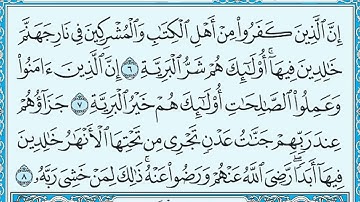 إِنَّ ٱلَّذِينَ كَفَرُوا۟ مِنْ أَهْلِ ٱلْكِتَٰبِ وَٱلْمُشْرِكِينَ فِى نَارِ جَهَنَّمَ
خَٰلِدِينَ فِيهَآ ۚ أُو۟لَٰٓئِكَ هُمْ شَرُّ ٱلْبَرِيَّةِ ٦ إِنَّ ٱلَّذِينَ ءَامَنُوا۟
وَعَمِلُوا۟ ٱلصَّٰلِحَٰتِ أُو۟لَٰٓئِكَ هُمْ خَيْرُ ٱلْبَرِيَّةِ ٧ جَزَآؤُهُمْ
عِندَ رَبِّهِمْ جَنَّٰتُ عَدْنٍ تَجْرِى مِن تَحْتِهَا ٱلْأَنْهَٰرُ خَٰلِدِينَ
فِيهَآ أَبَدًا ۖ رَّضِىَ ٱللَّهُ عَنْهُمْ وَرَضُوا۟ عَنْهُ ۚ ذَٰلِكَ لِمَنْ خَشِىَ رَبَّهُۥ ٨